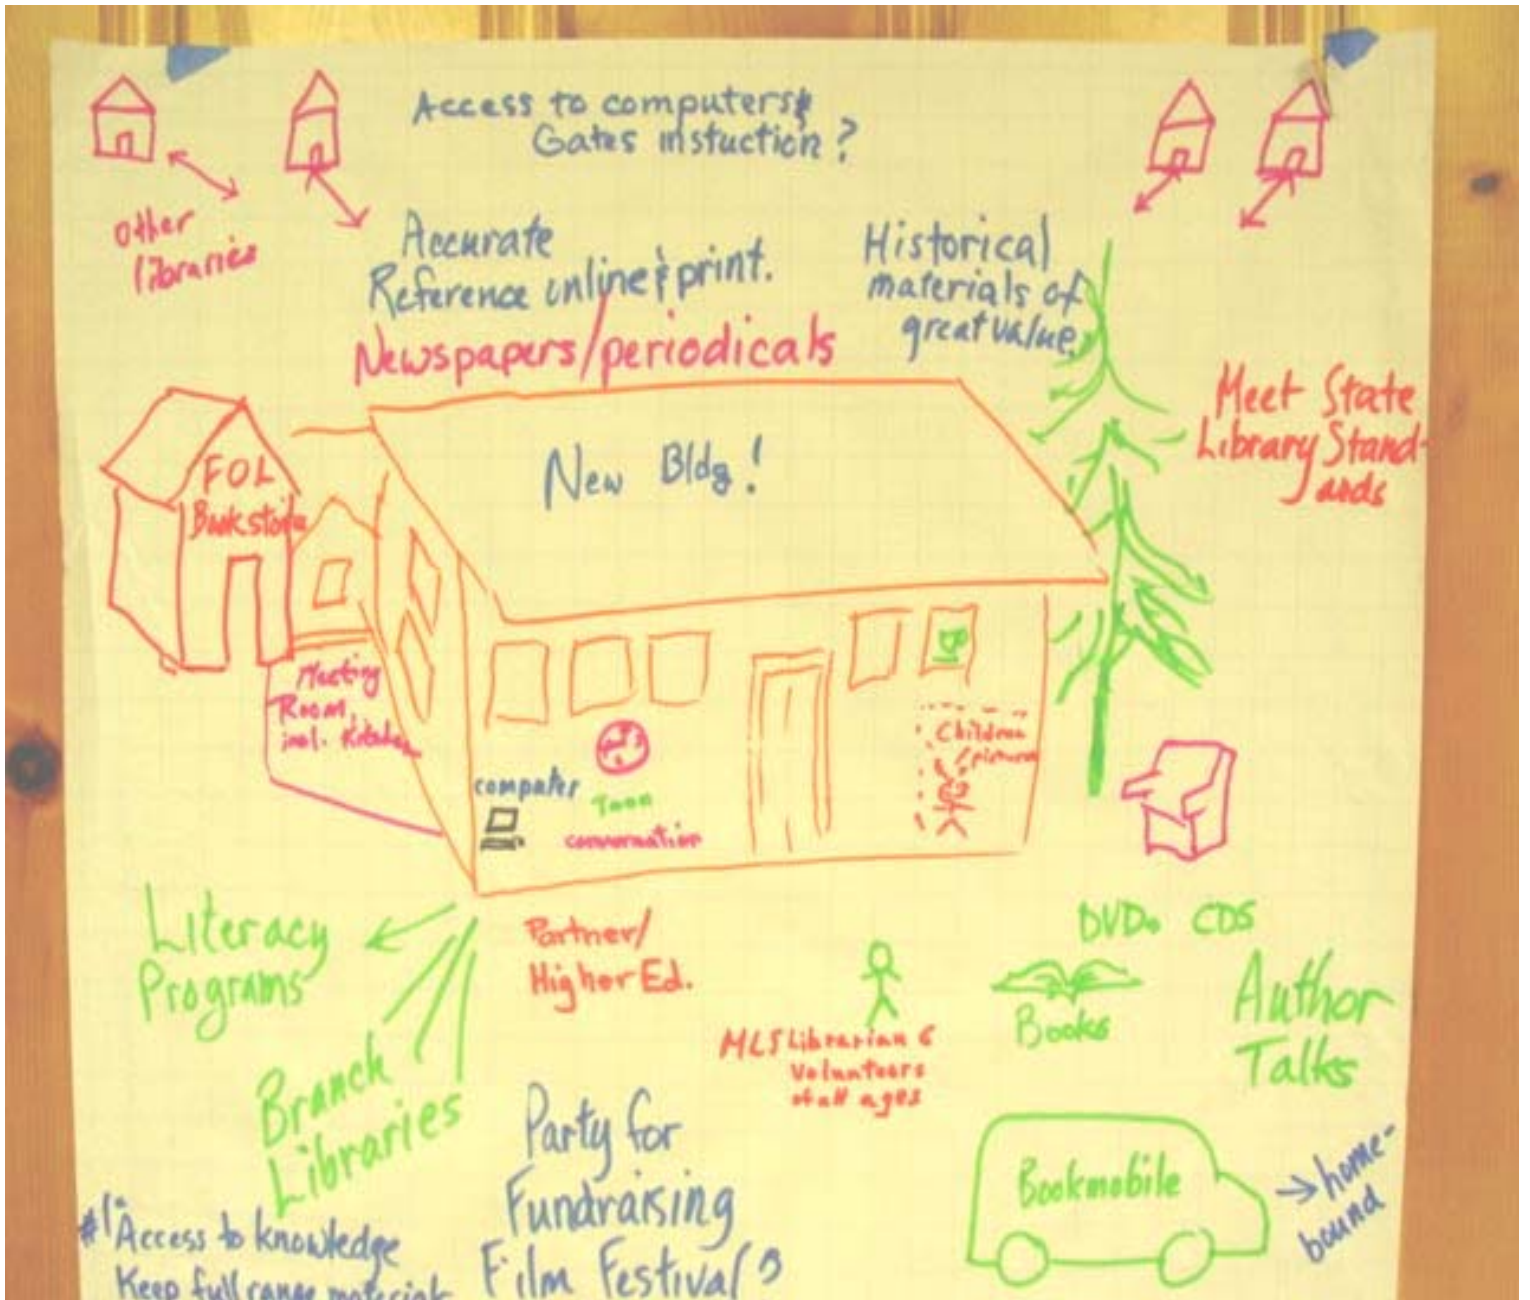 Access to computers &
Gates instuction ?
Other
libraries
Accurate
Reference online & print.
Newspapers/periodicals
Historical
materials of
great value.
Meet State
Library Stand-
ards
FOL
Bookstore
New Bldg!
Meeting
Room,
incl. Kitchen
computer
Teen
conversation
Children
/pictures
Literacy
Programs
Partner/
Higher Ed.
DVDs CDS
Books
Author
Talks
MLS Librarian &
Volunteers
of all ages
Branch
Libraries
Party for
Fundraising
Film Festival?
Bookmobile
→ home-
bound
#1 Access to knowledge
Keep full range materials